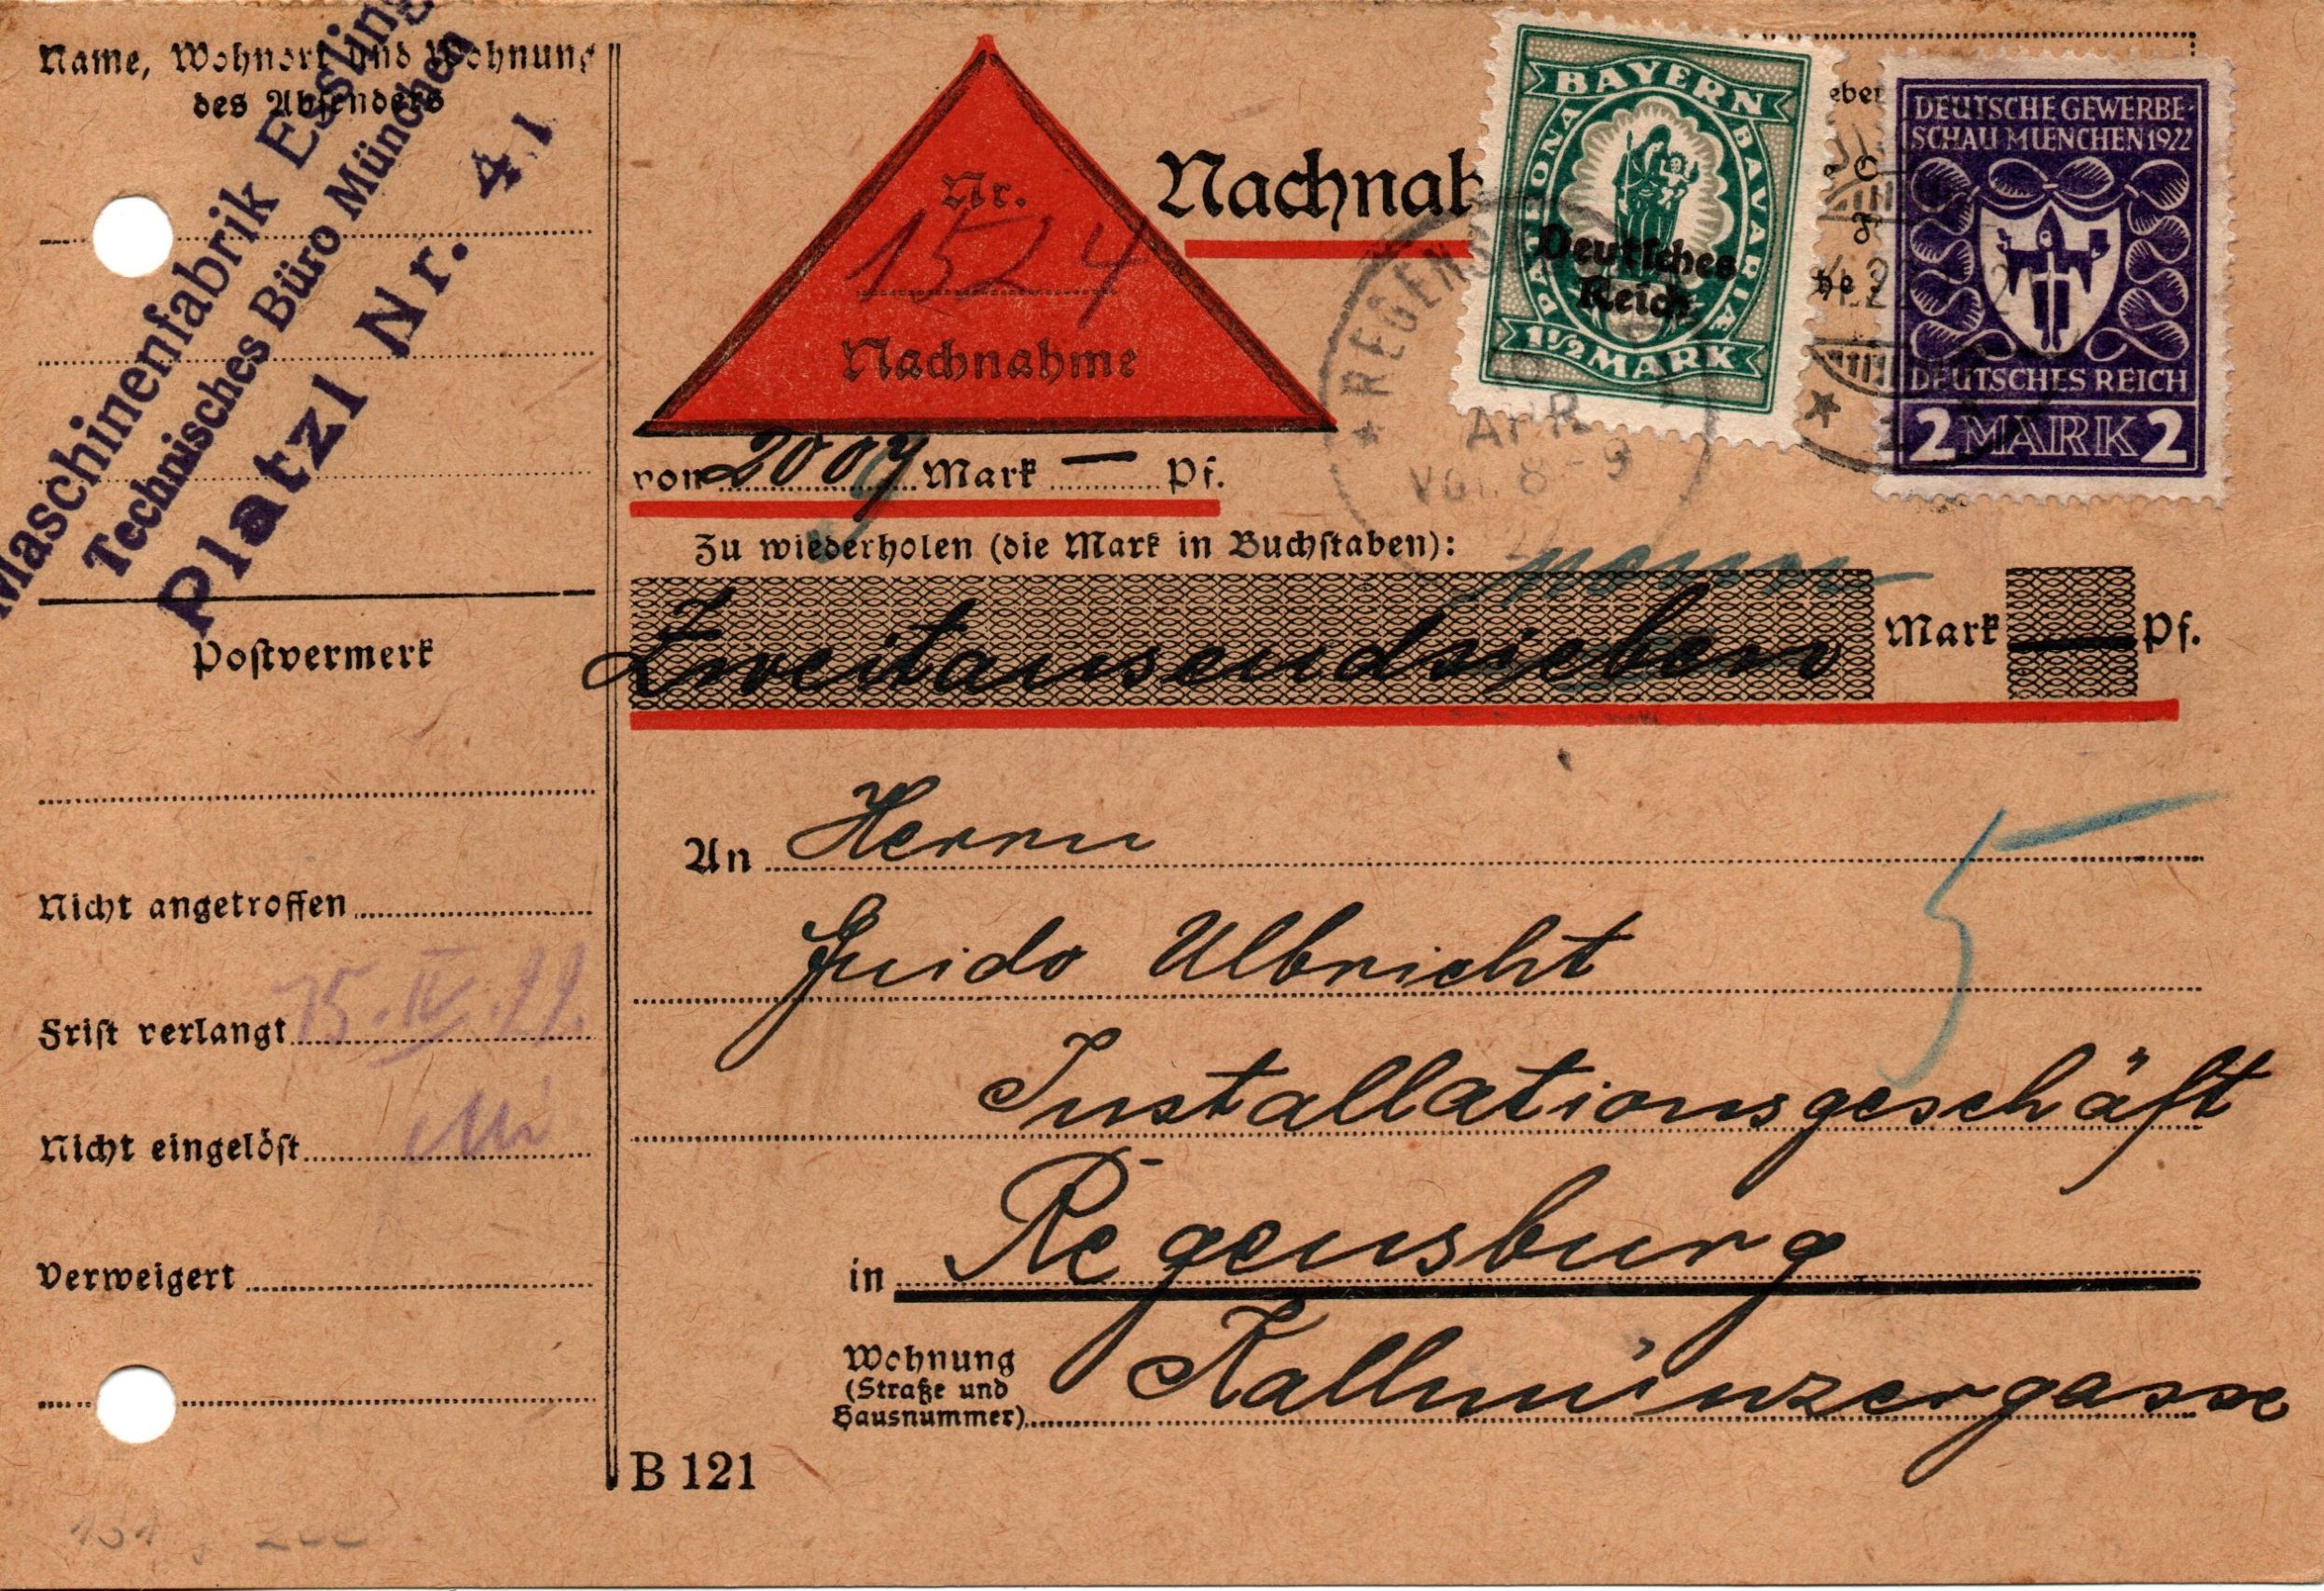 Name, Wohnort und Wohnung
des Absenders
Maschinenfabrik Essling
Technisches Büro München
Platzl Nr. 4/I
Postvermerk
Nicht angetroffen
Frist verlangt 15. IV. 22.
Nicht eingelöst
Verweigert
Nr.
1524
Nachnahme
Nachnah
BAYERN
PATRONA BAVARIÆ
Deutsches
Reich
1 1/2 MARK
DEUTSCHE GEWERBE-
SCHAU MUENCHEN 1922
DEUTSCHES REICH
2 MARK 2
REGENS
APR
Vor. 8-9
von 2009 Mark — Pf.
Zu wiederholen (die Mark in Buchstaben):
Zweitausendsieben Mark — Pf.
An Herrn
Guido Ulbricht
Installationsgeschäft
in Regensburg
Wohnung
(Straße und
Hausnummer)
Kallmünzergasse
5
B 121